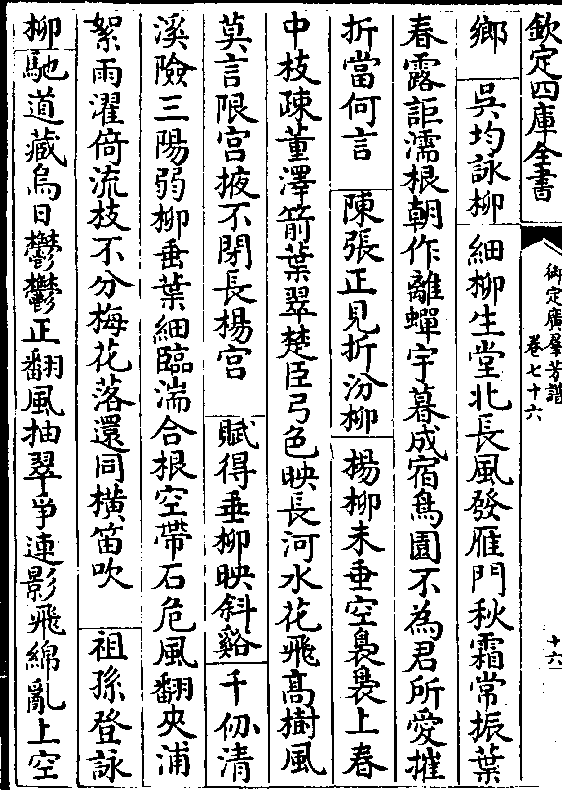 欽定四庫全書
御定廣羣芳譜
卷七十六
十六
鄉　吳均詠柳　細柳生堂北長風發雁門秋霜常振葉
春露詎濡根朝作離蟬宇暮成宿鳥園不為君所愛摧
折當何言　陳張正見折汾柳　楊柳未垂空裊裊上春
中枝疎董澤箭葉翠楚臣弓色映長河水花飛高樹風
莫言限宮掖不閉長楊宮　賦得垂柳映斜谿　千仞清
溪險三陽弱柳垂葉細臨湍合根空帶石危風翻夾浦
絮雨濯倚流枝不分梅花落還同橫笛吹　祖孫登詠
柳　馳道藏烏日鬱鬱正翻風抽翠爭連影飛綿亂上空